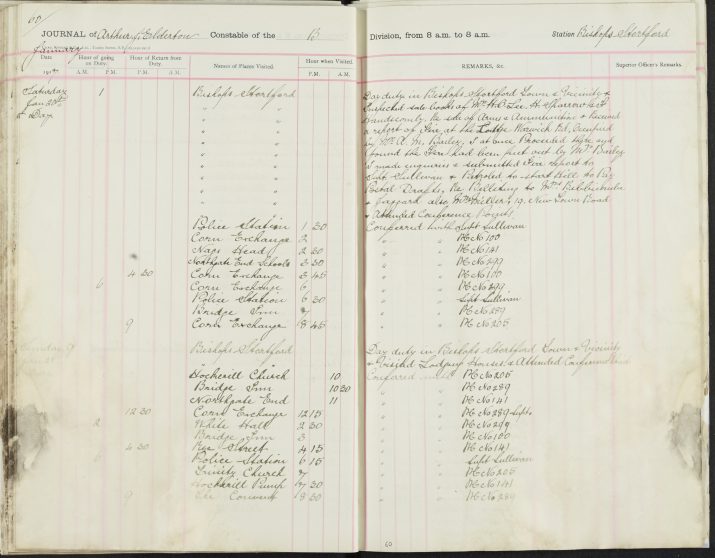 JOURNAL of Arthur S. Elderton Constable of the B Division, from 8 a.m. to 8 a.m. Station Bishops Stortford
January
Date Hour of going on Duty. Hour of Return from Duty. Names of Places Visited. Hour when Visited. REMARKS, &c. Superior Officer's Remarks.
A.M. P.M. A.M. P.M. P.M. A.M.
Saturday 1 Bishops Stortford Day duty in Bishops Stortford Town & Vicinity &
Jan 20th " " Inspected sale books of Mr H. O. Lee H. Sparrow &
Day " " Handscomby Re sale of Arms & Ammunition & Received
" " a report of Fire at the Lodge Warwick Rd, Occupied
" " by Mr A. M. Bailey, I at once Proceeded there and
" " found the Fire had been put out by Mrs Bailey
" " I made enquiries & submitted Fire report to
" " Supt Sullivan & Patroled to Start Hill to
" " Postal Drafts, Re Billeting to Mrs
" " & Jaggard also Mrs Miller, 19, New Town Road
& Attended Conference Points
Police Station 1 30 Conferred with Supt Sullivan
Corn Exchange 2 " " PC No 100
Nags Head 2 30 " " PC No 141
Northgate End Schools 3 30 " " PC No 299
4 30 Corn Exchange 3 45 " " PC No 100
6 Corn Exchange 6 " " PC No 299
Police Station 6 30 " " Supt Sullivan
Bridge Inn 7 " " PC No 289
9 Corn Exchange 8 45 " " PC No 205
Sunday 9 Bishops Stortford Day duty in Bishops Stortford Town & Vicinity
& Visited Lodging Houses & Attended Conference
Hockerill Church 10 Conferred with PC No 205
Bridge Inn 10 30 " " PC No 289
Northgate End 11 " " PC No 141
12 30 Corn Exchange 12 15 " " PC No 289 Supt.
2 White Hall 2 30 " " PC No 299
Bridge Inn 3 " " PC No 100
4 30 Street 4 15 " " PC No 141
6 Police Station 6 15 " " Supt Sullivan
Trinity Church 7 " " PC No 205
Hockerill Pump 7 30 " " PC No 141
9 The Convent 8 30 " " PC No 289
60